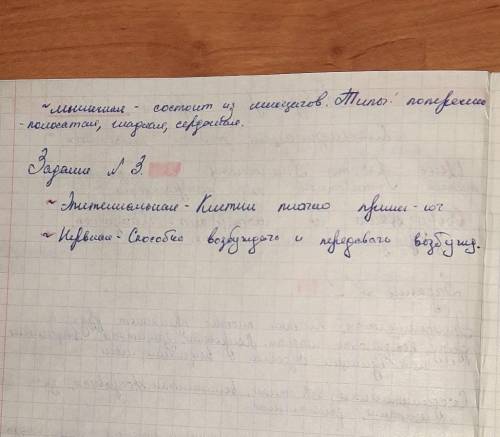 ~ мышечная - состоит из миоцитов. Типы: поперечно
- полосатая, гладкая, сердечная.
Задание № 3.
~ Эпителиальная - Клетки плотно примы-ют
~ Нервная - Способна возбуждать и передавать возбужд.